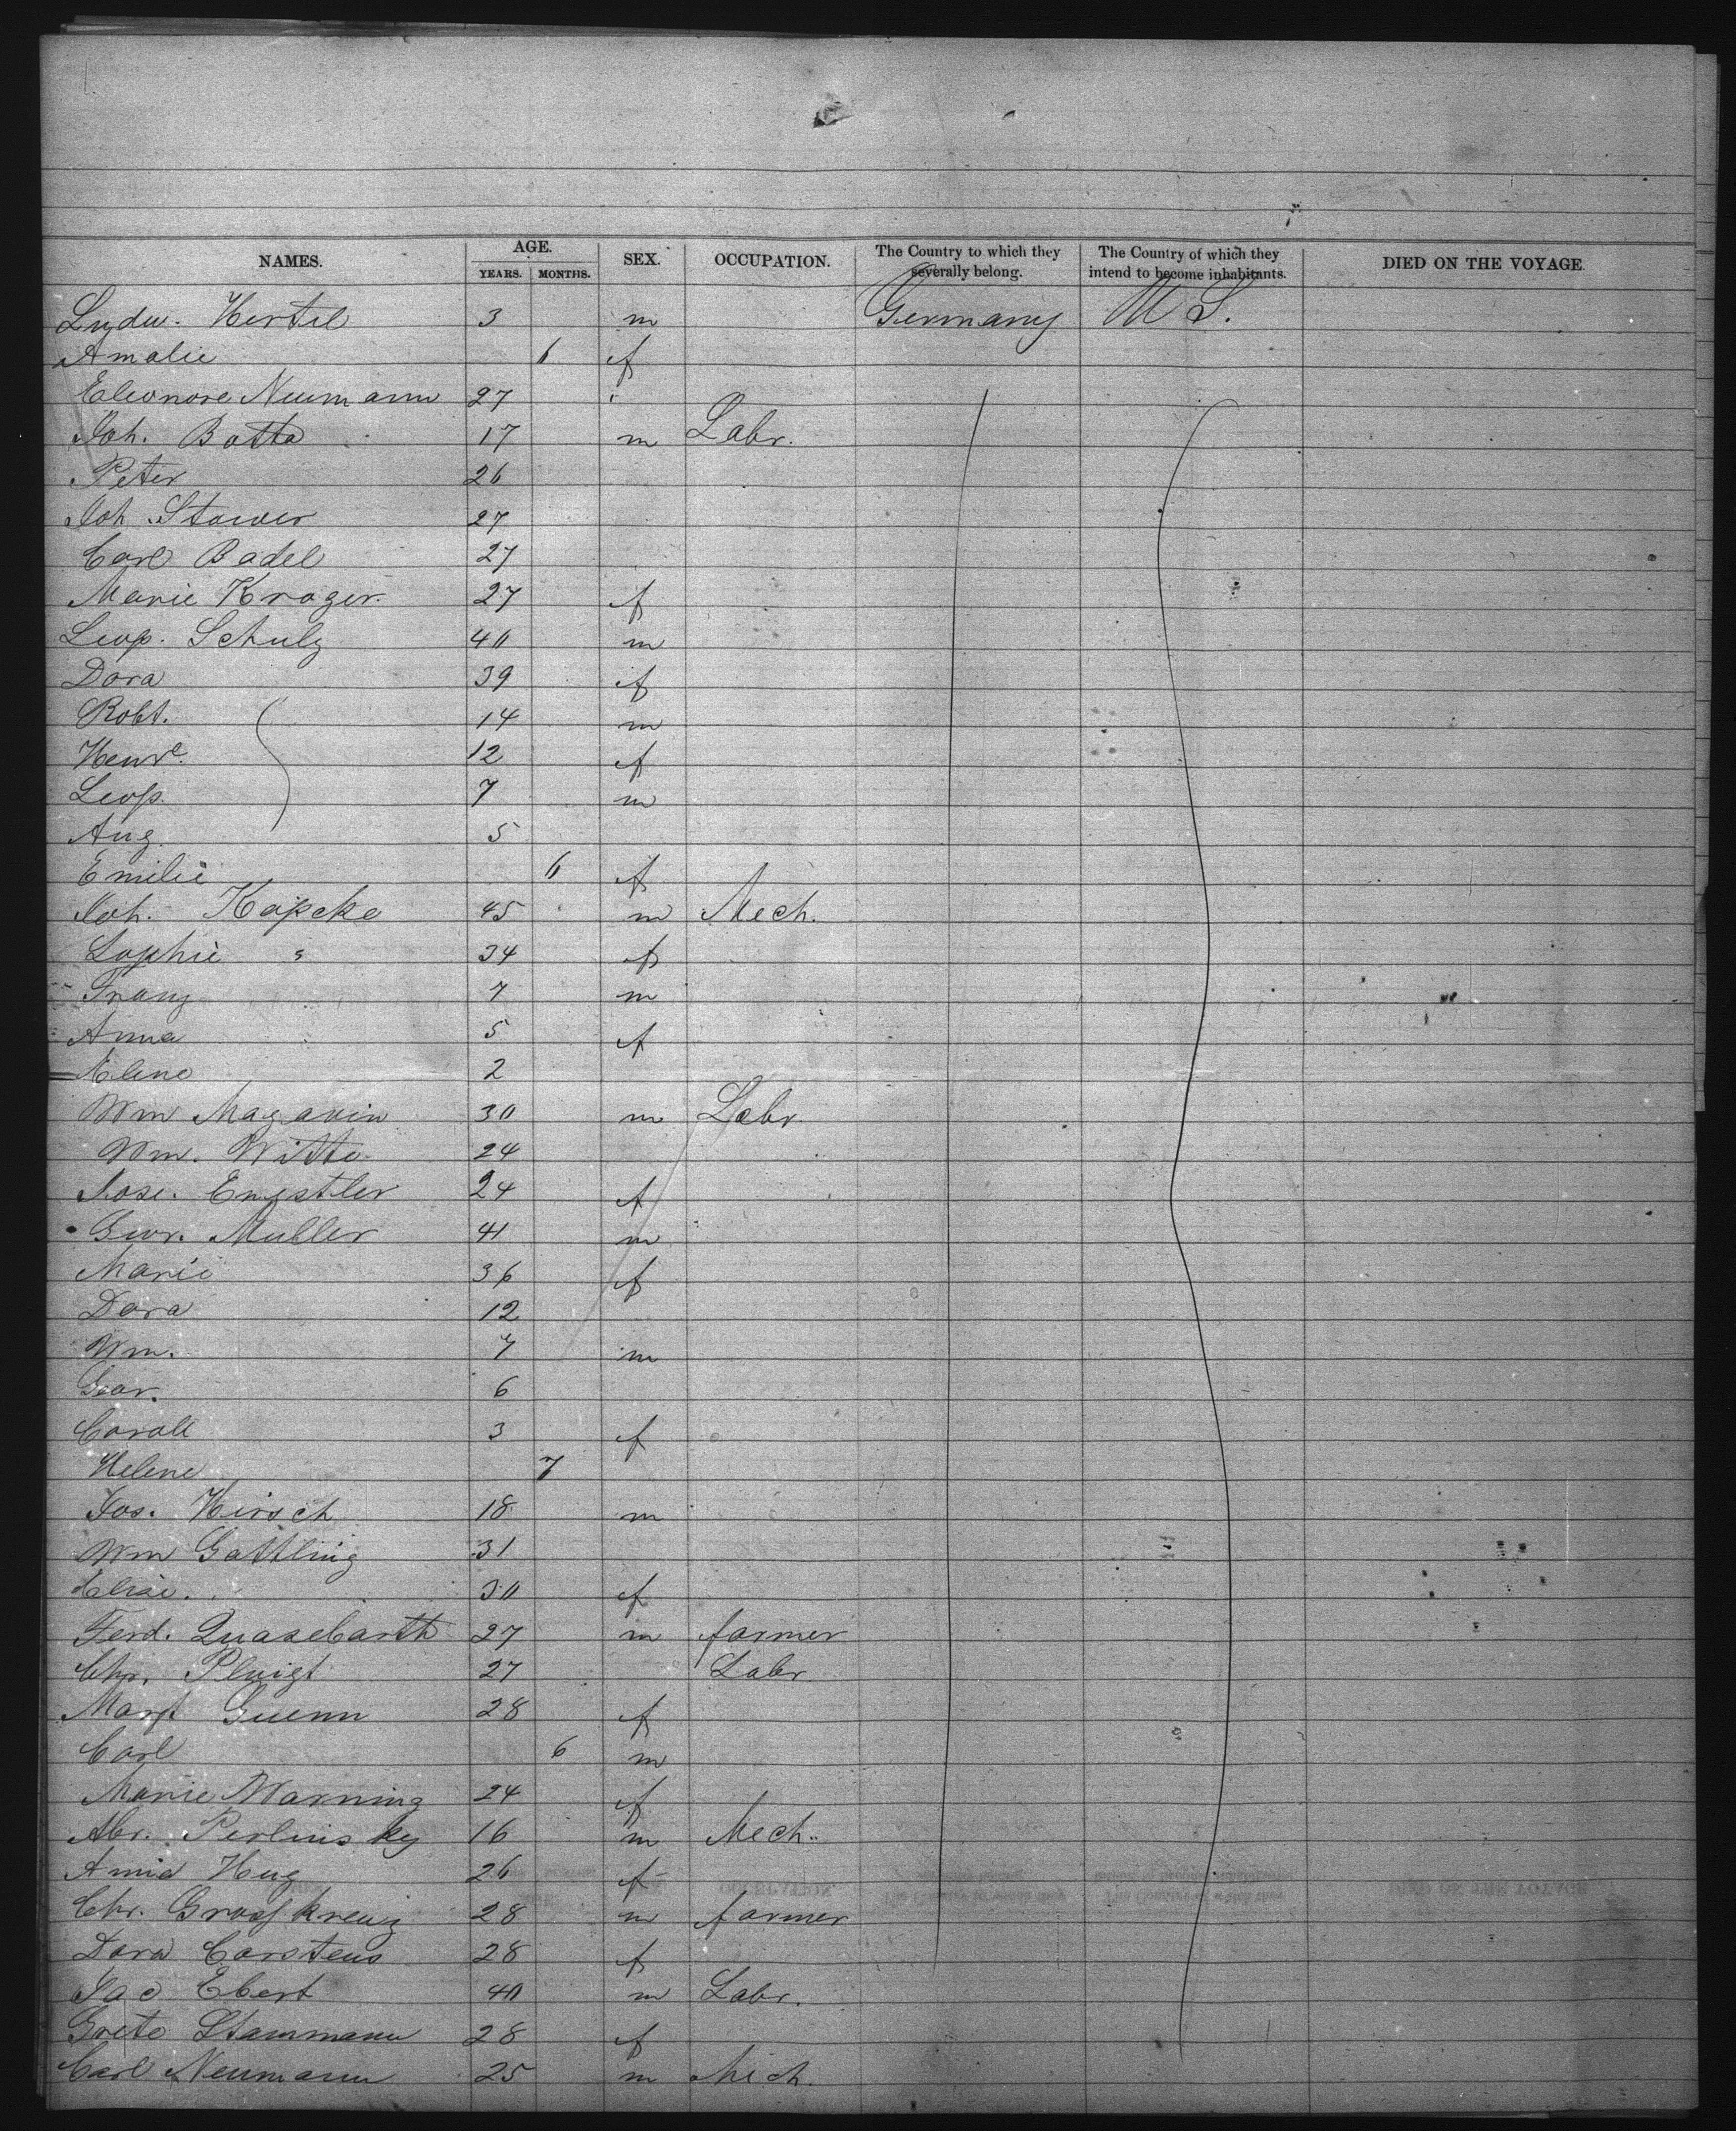 NAMES. AGE. SEX. OCCUPATION. The Country to which they severally belong. The Country of which they intend to become inhabitants. DIED ON THE VOYAGE
YEARS. MONTHS.
Ludw. Hertel 3 m Germany U S.
Amalie 6 f
Eleonore Neumann 27 "
Joh. Botta 17 m Labr.
Peter 26
Joh. Stower 27
Carl Badel 27
Marie Kroger 27 f
Leop. Schulz 40 m
Dora 39 f
Robt. 14 m
Henre. 12 f
Leop. 7 m
Aug. 5
Emilie 6 f
Joh. Köpcke 45 m Mech.
Sophie " 34 f
Franz 7 m
Anna 5 f
Helene 2
Wm Magavin 30 m Labr.
Wm. Witte 24
24 f
Geor. Muller 41 m
Marie 36 f
Dora 12
Wm. 7 m
Geor. 6
3 f
Helene 7
Jos. Hirsch 18 m
Wm Gattling 31
Elise. 30 f
Ferd. Quasebarth 27 m farmer
Chr. 27 Labr
Margt Guenn 28 f
Carl 6 m
Marie Warning 24 f
Abr. Perlinsky 16 m Mech.
Hug 26 f
Chr. Grosskreuz 28 m farmer
Dora Carstens 28 f
Jac Ebert 40 m Labr.
Grete Stammann 28 f
Carl Neumann 25 m Mech.